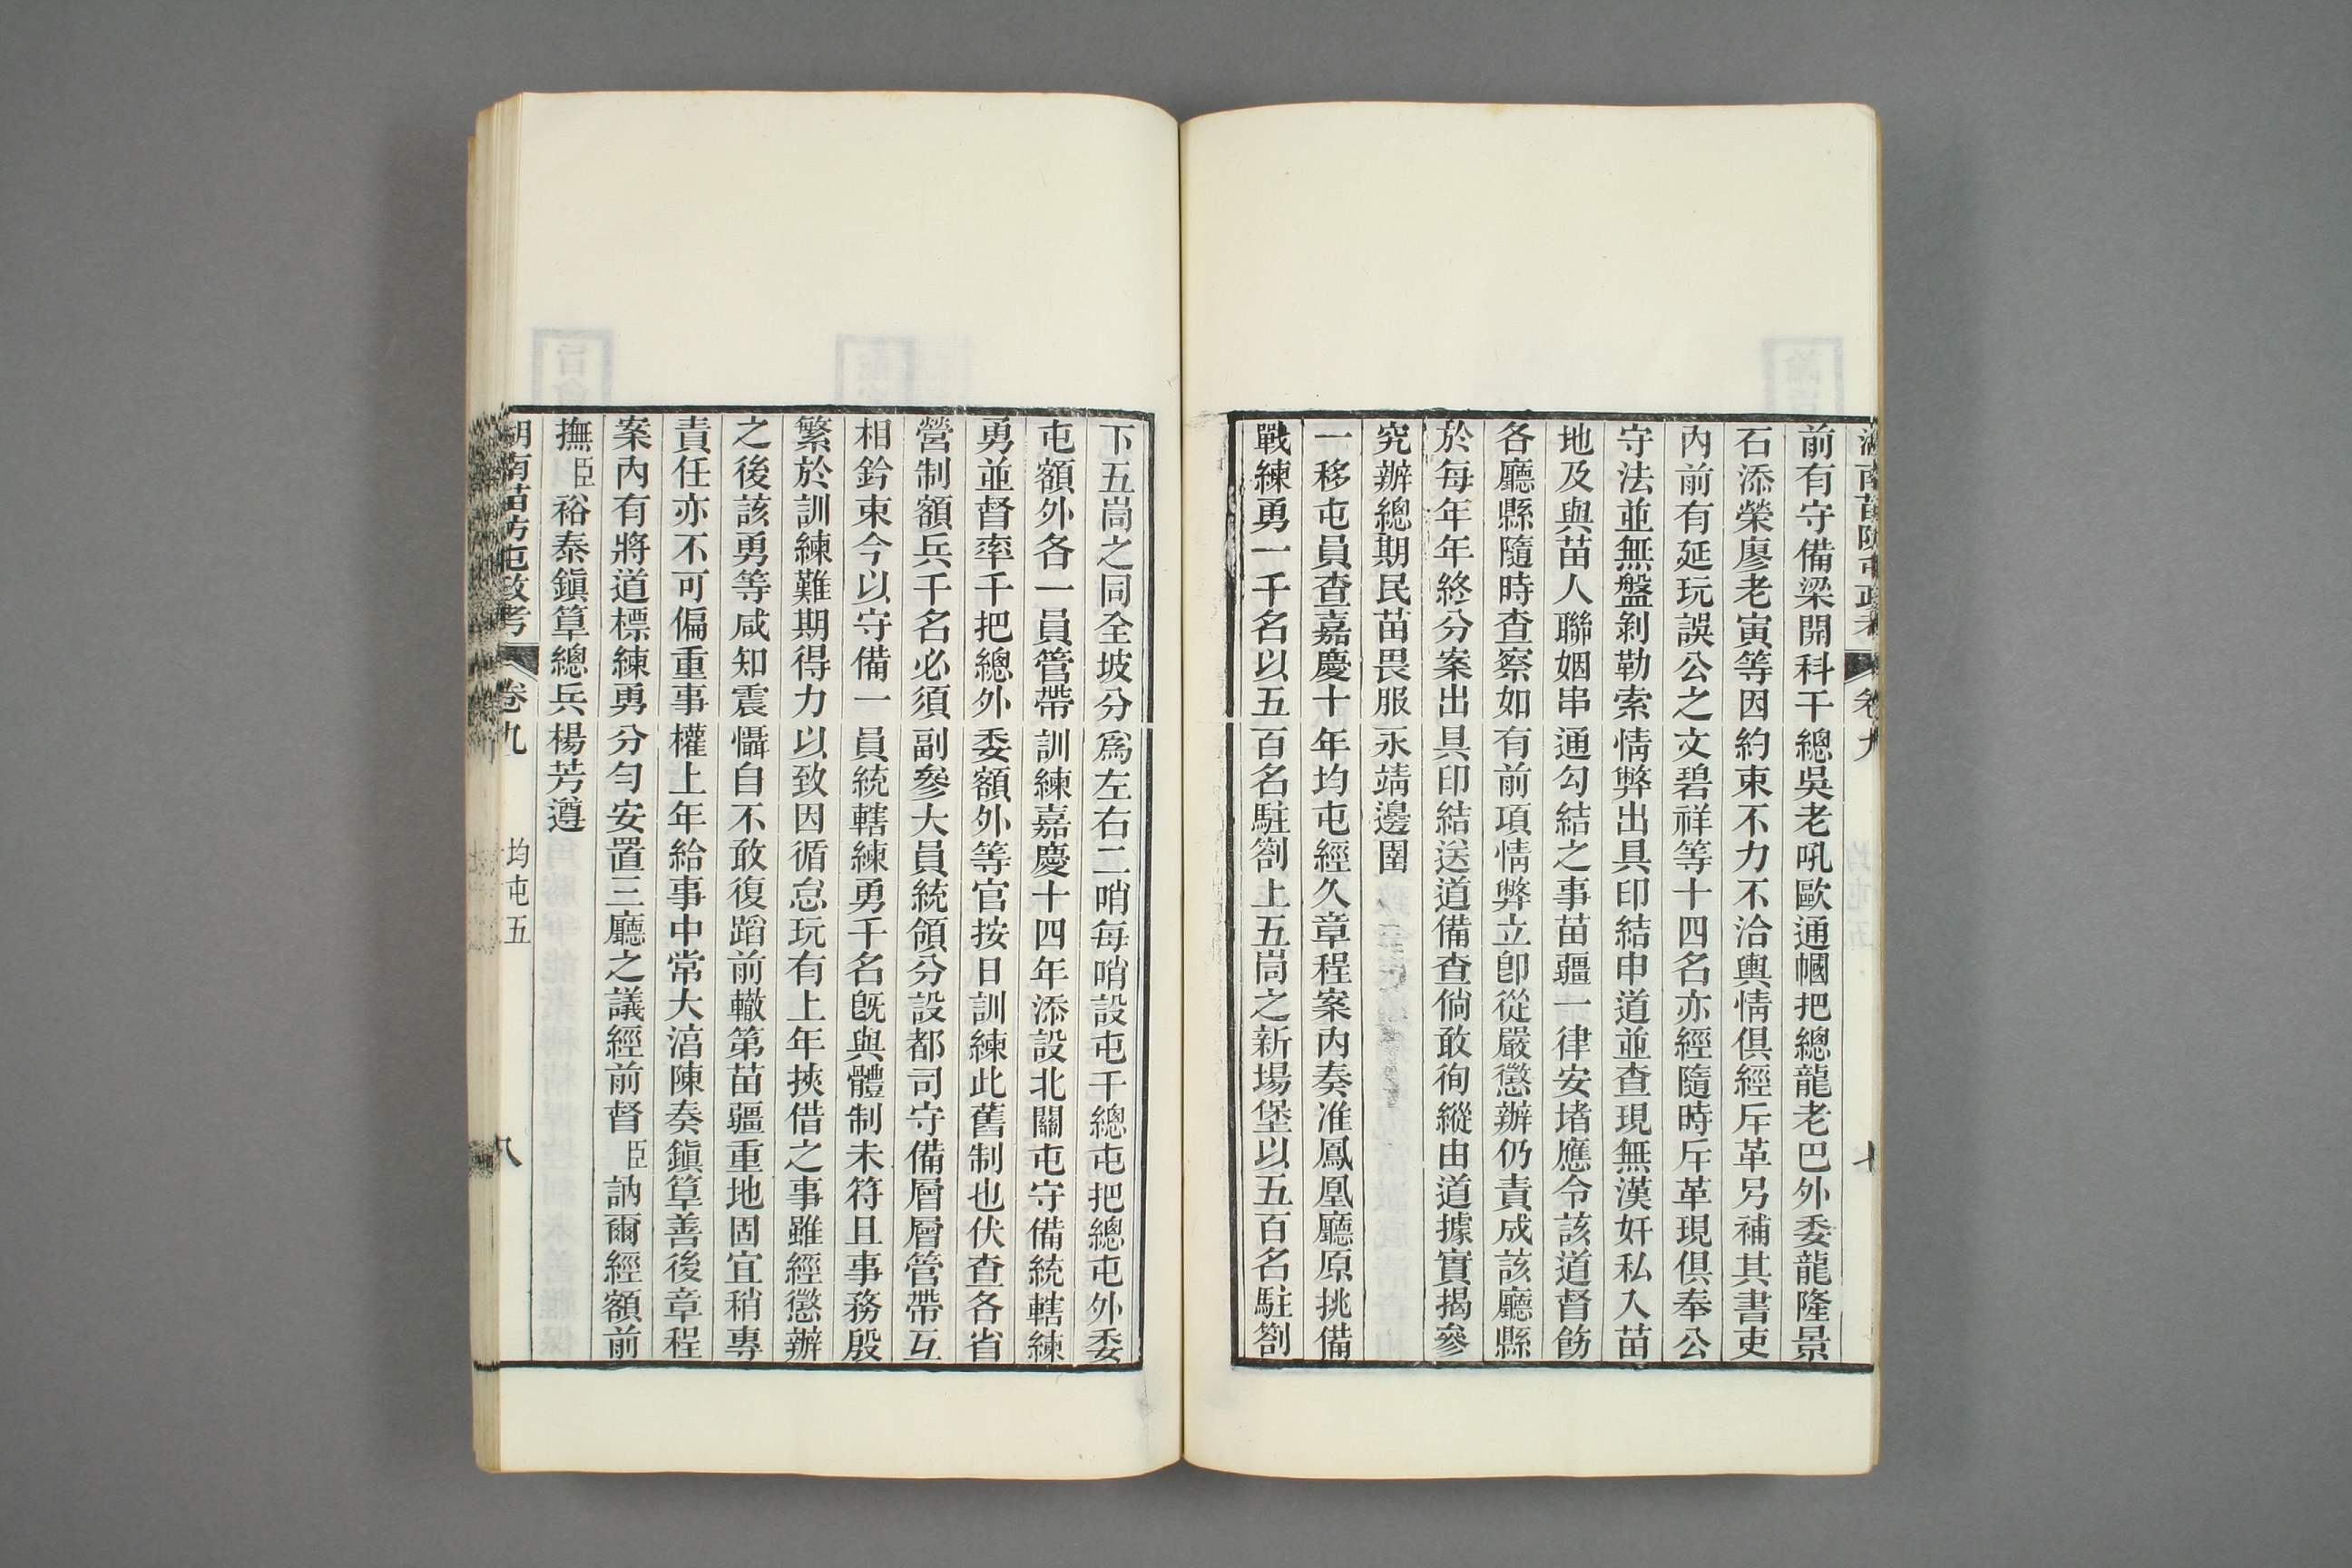 湖南苗防屯政考 卷九 七
前有守備梁開科千總吳老吼歐通幗把總龍老巴外委龍隆景
石添榮廖老寅等因約束不力不洽輿情俱經斥革另補其書吏
內前有延玩誤公之文碧祥等十四名亦經隨時斥革現俱奉公
守法並無盤剝勒索情弊出具印結申道並查現無漢奸私入苗
地及與苗人聯姻串通勾結之事苗疆一律安堵應令該道督飭
各廳縣隨時查察如有前項情弊立卽從嚴懲辦仍責成該廳縣
於每年年終分案出具印結送道備查倘敢徇縱由道據實揭參
究辦總期民苗畏服永靖邊圉
一移屯員查嘉慶十年均屯經久章程案內奏准鳳凰廳原挑備
戰練勇一千名以五百名駐劄上五峝之新場堡以五百名駐劄
下五峝之同全坡分爲左右二哨每哨設屯千總屯把總屯外委
屯額外各一員管帶訓練嘉慶十四年添設北關屯守備統轄練
勇並督率千把總外委額外等官按日訓練此舊制也伏查各省
營制額兵千名必須副參大員統領分設都司守備層層管帶互
相鈐束今以守備一員統轄練勇千名旣與體制未符且事務殷
繁於訓練難期得力以致因循怠玩有上年挾借之事雖經懲辦
之後該勇等咸知震懾自不敢復蹈前轍第苗疆重地固宜稍專
責任亦不可偏重事權上年給事中常大淓陳奏鎭筸善後章程
案內有將道標練勇分勻安置三廳之議經前督臣訥爾經額前
撫臣裕泰鎭筸總兵楊芳遵
湖南苗防屯政考 卷九 均屯五 八